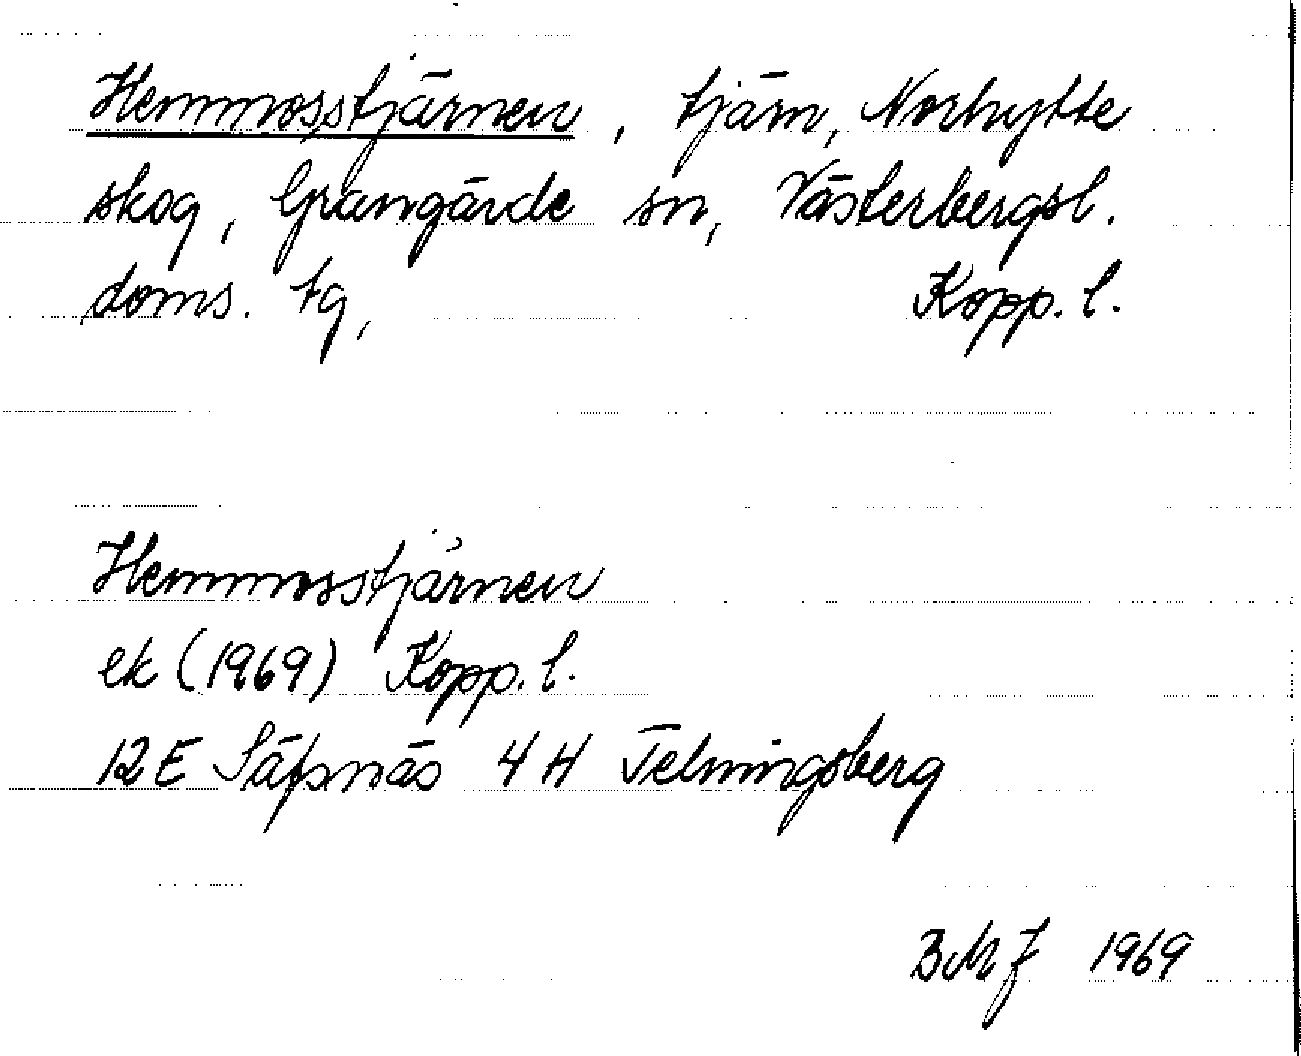 Hemmosstjärnen, tjärn, Norhytte
skog, Grangärde sn, Västerbergsl.
doms. tg, Kopp. l.
Hemmosstjärnen
ek (1969) Kopp. l.
12E Säfsnäs 4H Telningsberg
BMJ 1969